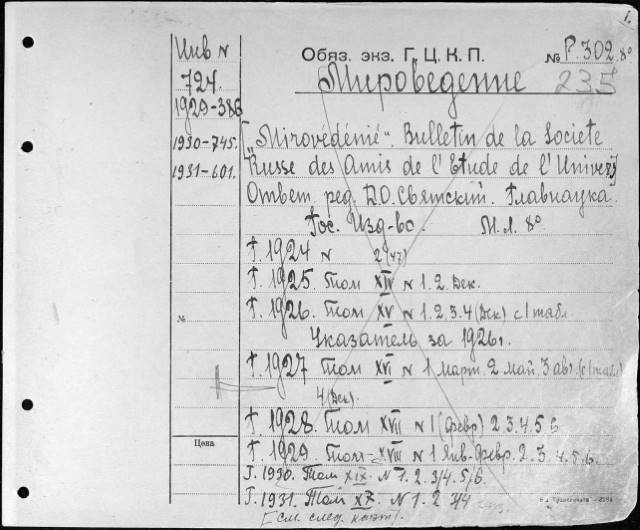 1.
Инв N Обяз. экз. Г.Ц.К.П. № Р.302.8°
Мироведение 235
724.
1929-386
1930-745. „Mirovédénié“. Bulletin de la Societe
1931-601. Russe des Amis de l'Etude de l'Univers
Ответ. ред. Д.О.Святский. Главнаука.
Гос. Изд-во. М.Л. 8°
Г. 1924 N 2(47)
Г. 1925. Том XIV N 1.2. Дек.
№ Г. 1926. Том XV N 1.2.3.4 (Дек) с 1 табл
Указатель за 1926г.
Г. 1927 Том XVI N 1 март. 2 май. 3 авг. (с 1 табл.)
4 (Дек).
Г. 1928. Том XVII N 1 (февр) 2.3.4.5 6
Цена Г. 1929. Том XVIII N 1 Янв-февр. 2.3.4.5.6.
Г. 1930. Том XIX. N 1.2.3/4.5/6.
Г. 1931. Том XX. N 1. 2 3/4
[см. след. карт].